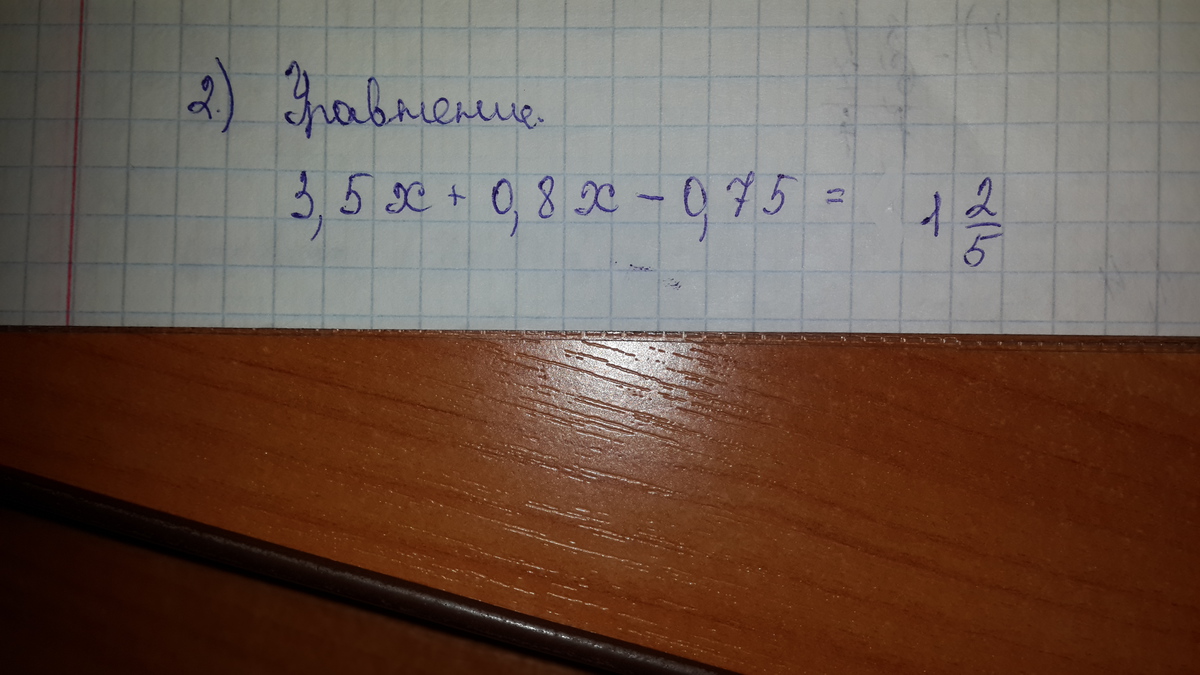 2.) Уравнение.
3,5x + 0,8x - 0,75 = 1 2/5